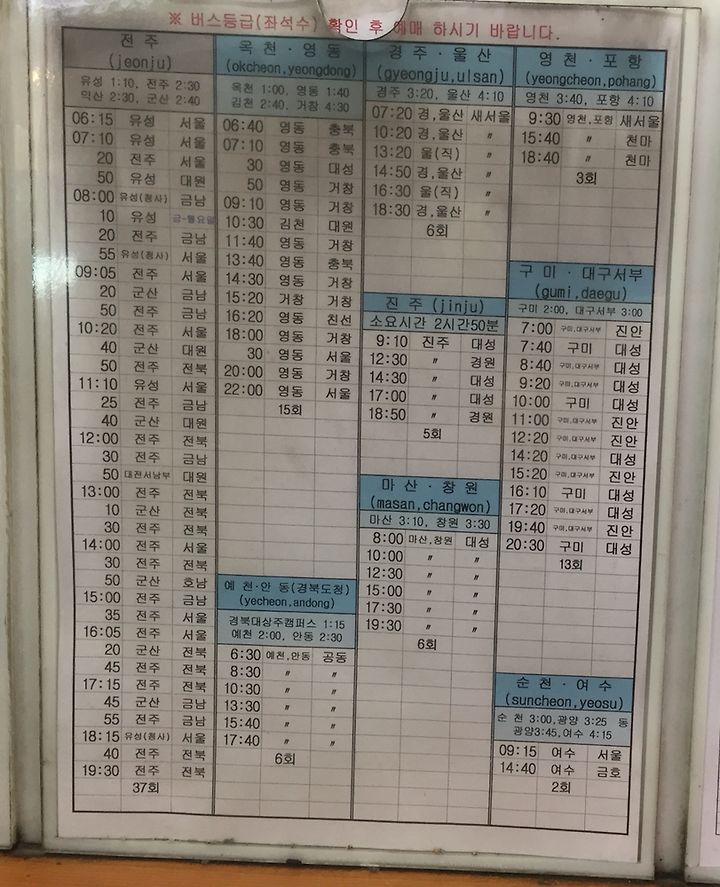 ※ 버스등급(좌석수) 확인 후 예매 하시기 바랍니다.
전 주
(jeonju)
유성 1:10, 전주 2:30
익산 2:30, 군산 2:40
06:15 유성 서울
07:10 유성 서울
20 전주 서울
50 유성 대원
08:00 유성(청사) 금남
10 유성 금~월요일
20 전주 금남
55 유성(청사) 서울
09:05 전주 서울
20 군산 금남
50 전주 금남
10:20 전주 서울
40 군산 대원
50 전주 전북
11:10 유성 서울
25 전주 금남
40 군산 대원
12:00 전주 전북
30 전주 금남
50 대전서남부 대원
13:00 전주 전북
10 군산 전북
30 전주 전북
14:00 전주 서울
30 전주 전북
50 군산 호남
15:00 전주 금남
35 전주 서울
16:05 전주 서울
20 군산 전북
45 전주 전북
17:15 전주 전북
45 군산 금남
55 전주 금남
18:15 유성(청사) 서울
40 전주 전북
19:30 전주 전북
37회
옥 천 · 영 동
(okcheon,yeongdong)
옥천 1:00, 영동 1:40
김천 2:40, 거창 4:30
06:40 영동 충북
07:10 영동 충북
30 영동 대성
50 영동 거창
09:10 영동 거창
10:30 김천 대원
11:40 영동 거창
13:40 영동 충북
14:30 영동 거창
15:20 거창 거창
16:20 영동 친선
18:00 영동 거창
30 영동 서울
20:00 영동 거창
22:00 영동 서울
15회
예 천·안 동(경북도청)
(yecheon,andong)
경북대상주캠퍼스 1:15
예천 2:00, 안동 2:30
6:30 예천,안동 공동
8:30 〃 〃
10:30 〃 〃
13:30 〃 〃
15:40 〃 〃
17:40 〃 〃
6회
경 주 · 울 산
(gyeongju,ulsan)
경주 3:20, 울산 4:10
07:20 경,울산 새서울
10:20 경,울산 〃
13:20 울(직) 〃
14:50 경,울산 〃
16:30 울(직) 〃
18:30 경,울산 〃
6회
진 주 (jinju)
소요시간 2시간50분
9:10 진주 대성
12:30 〃 경원
14:30 〃 대성
17:00 〃 대성
18:50 〃 경원
5회
마 산 · 창 원
(masan,changwon)
마산 3:10, 창원 3:30
8:00 마산,창원 대성
10:00 〃 〃
12:30 〃 〃
15:00 〃 〃
17:30 〃 〃
19:30 〃 〃
6회
영 천 · 포 항
(yeongcheon,pohang)
영천 3:40, 포항 4:10
9:30 영천,포항 새서울
15:40 〃 천마
18:40 〃 천마
3회
구 미 · 대구서부
(gumi,daegu)
구미 2:00, 대구서부 3:00
7:00 구미,대구서부 진안
7:40 구미 대성
8:40 구미,대구서부 대성
9:20 구미,대구서부 대성
10:00 구미 대성
11:00 구미,대구서부 진안
12:20 구미,대구서부 진안
14:20 구미,대구서부 대성
15:20 구미,대구서부 진안
16:10 구미 대성
17:20 구미,대구서부 대성
19:40 구미,대구서부 진안
20:30 구미 대성
13회
순 천 · 여 수
(suncheon,yeosu)
순 천 3:00,광양 3:25 동
광양3:45,여수 4:15
09:15 여수 서울
14:40 여수 금호
2회